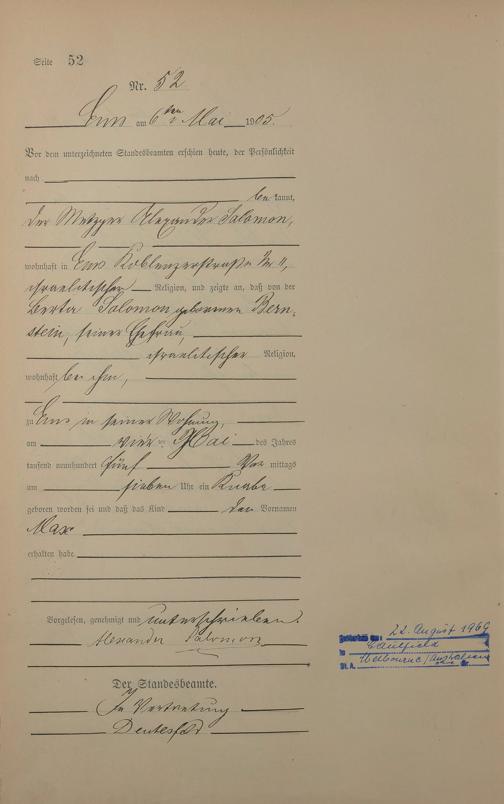 Seite 52
Nr. 52
Ems am 6ten Mai 1905.
Vor dem unterzeichneten Standesbeamten erschien heute, der Persönlichkeit
nach
be kannt,
der Metzger Alexander Salomon,
wohnhaft in Ems Koblenzerstraße Nr 11,
israelitischer Religion, und zeigte an, daß von der
Berta Salomon geborenen Bern-
stein, seiner Ehefrau,
israelitischer Religion,
wohnhaft bei ihm,
zu Ems in seiner Wohnung,
am vier ten Mai des Jahres
tausend neunhundert fünf Vor mittags
um sieben Uhr ein Knabe
geboren worden sei und daß das Kind den Vornamen
Max
erhalten habe
Vorgelesen, genehmigt und unterschrieben.
Alexander Salomon
Der Standesbeamte.
In Vertretung
Gestorben am: 22. August 1969
in Caulfield
St. A. Melbourne/Australien Nr.